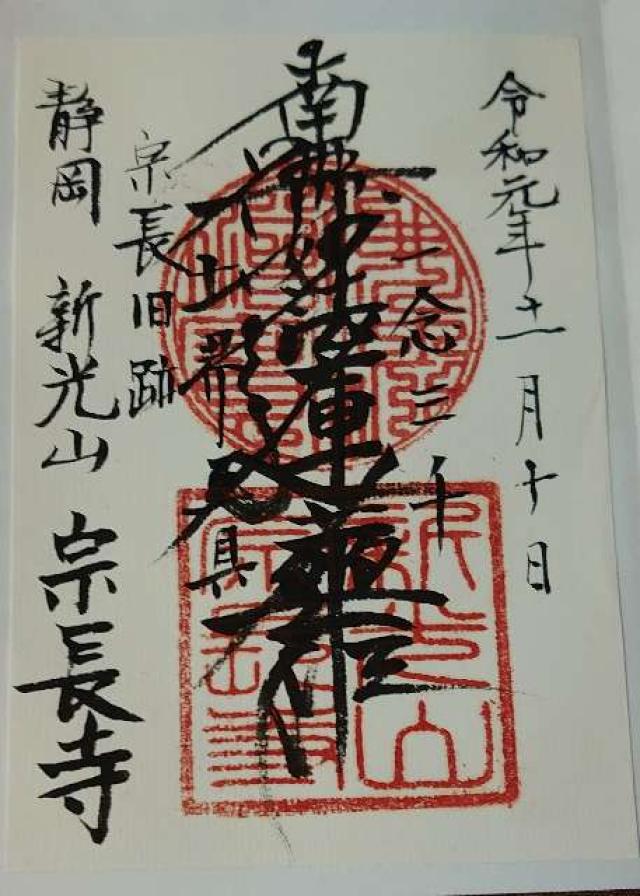 令和元年十一月十日
一念三千
南無妙法蓮華経
十界互具
宗長旧跡
静岡 新光山 宗長寺
新光山
宗長寺